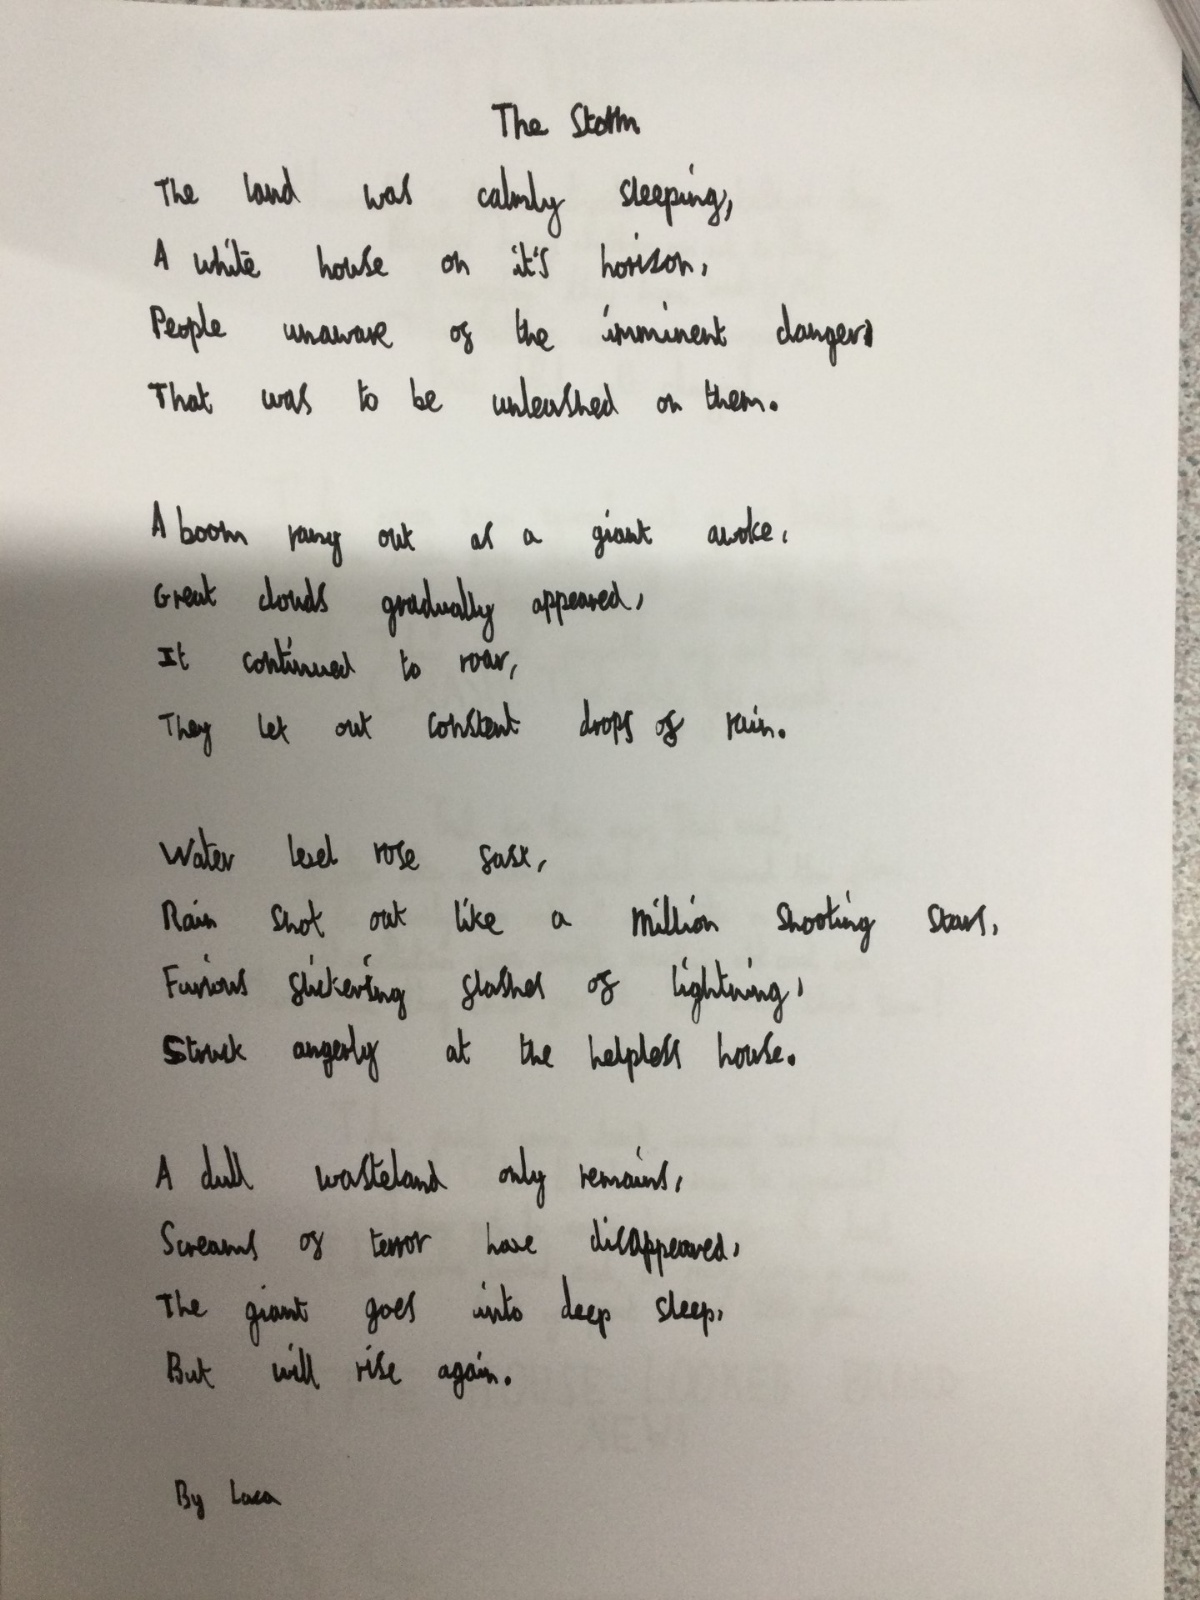 The Storm
The land was calmly sleeping,
A white house on it's horison,
People unaware of the imminent danger,
That was to be unleashed on them.
A boom rang out as a giant awoke,
Great clouds gradually appeared,
It continued to roar,
They let out constent drops of rain.
Water level rose fast,
Rain shot out like a million shooting stars,
Furious flickering flashes of lightning,
Struck angerly at the helpless house.
A dull wasteland only remains,
Screams of terror have disappeared,
The giant goes into deep sleep,
But will rise again.
By Luca